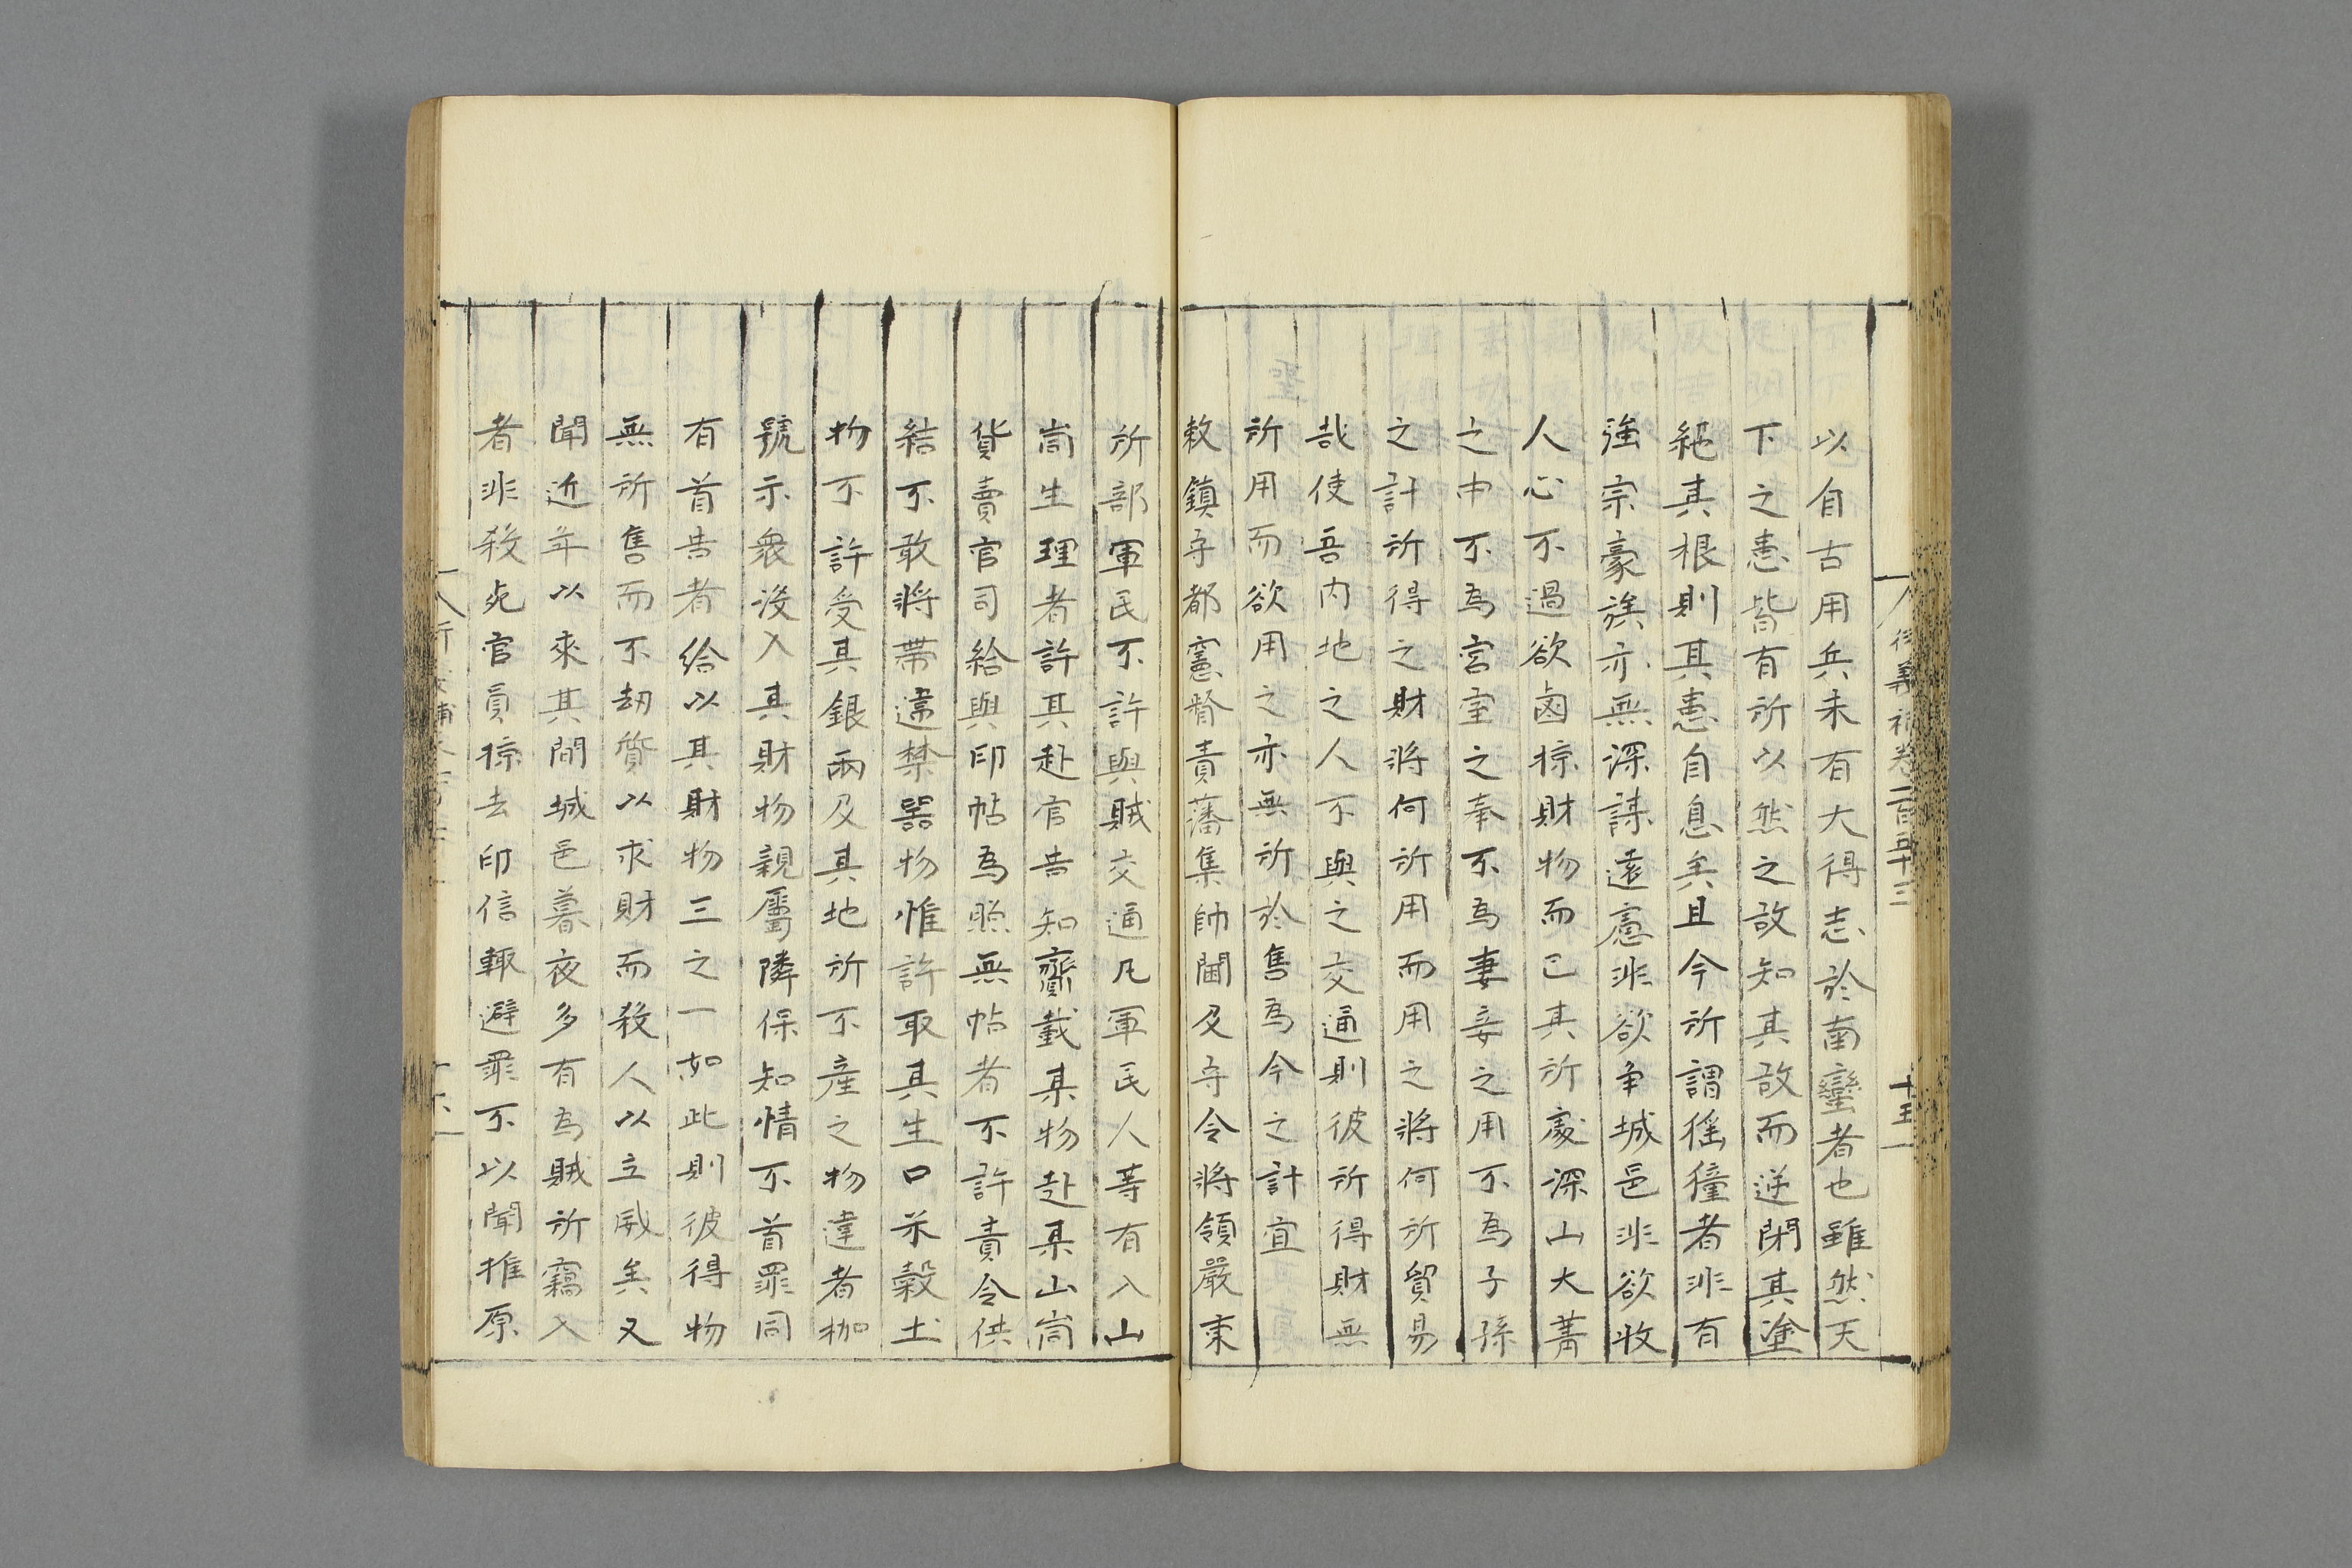 衍義補卷一百五十三 十五
以自古用兵未有大得志於南蠻者也雖然天
下之患皆有所以然之故知其故而逆閉其塗
絕其根則其患自息矣且今所謂徭獞者非有
強宗豪族亦無深謀遠慮非欲争城邑非欲收
人心不過欲鹵掠財物而已其所處深山大菁
之中不為宮室之奉不為妻妾之用不為子孫
之計所得之財將何所用而用之將何所貿易
哉使吾内地之人不與之交通則彼所得財無
所用而欲用之亦無所於售為今之計宜
敕鎮守都憲督責藩集帥閫及守令將領嚴束
所部軍民不許與賊交通凡軍民人等有入山
峝生理者許其赴官告知齎載某物赴某山峝
貨賣官司給與印帖為照無帖者不許責令供
結不敢將帶違禁器物惟許取其生口米穀土
物不許受其銀兩及其地所不產之物違者枷
號示衆沒入其財物親屬隣保知情不首罪同
有首告者給以其財物三之一如此則彼得物
無所售而不刼質以求財而殺人以立威矣又
聞近年以來其間城邑暮夜多有為賊所竊入
者非殺死官員掠去印信輙避罪不以聞推原